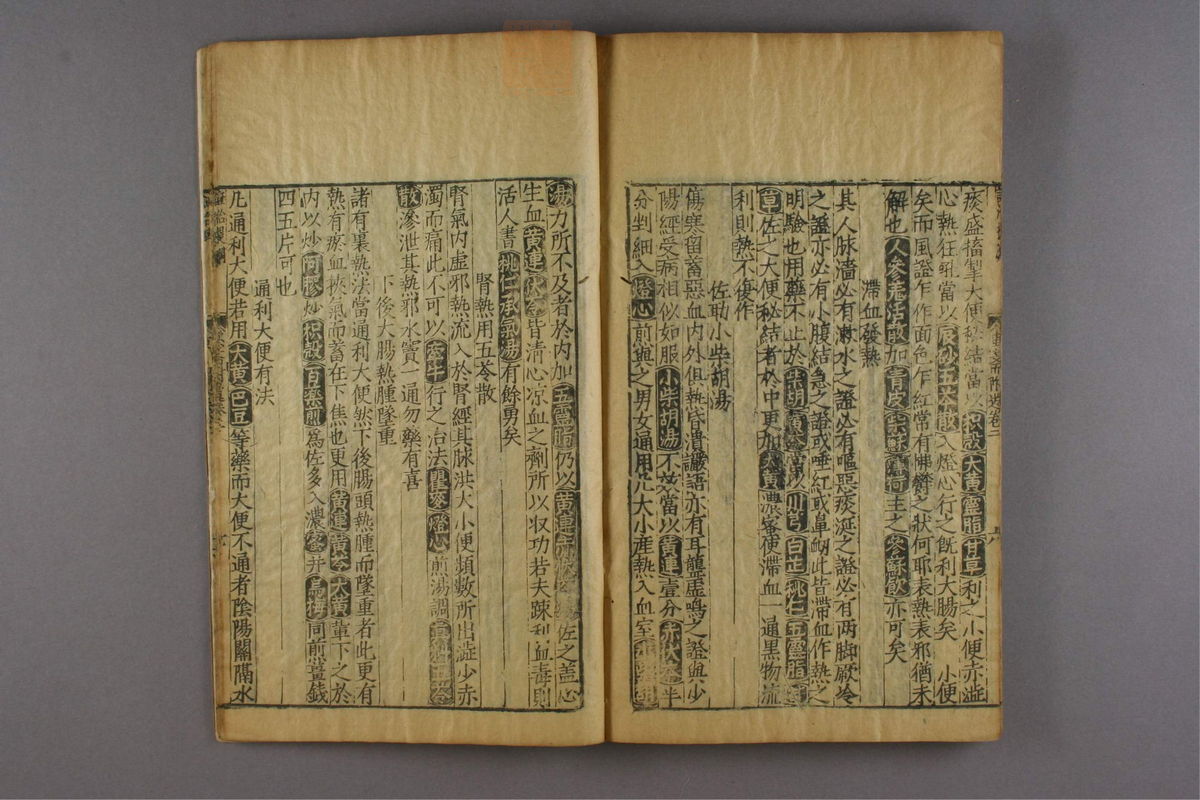 痰盛搐掣大便秘結當以枳殼大黃靈脂甘草利之小便赤澁
心熱狂躁當以辰砂五苓散入燈心行之既利大腸矣小便
矣而風證乍作面色乍紅常有怫鬱之狀何耶表熱表邪猶未
解也人參羌活散加青皮紫蘇薄荷主之參蘇飲亦可矣
滯血發熱
其人脉濇必有漱水之證必有嘔惡痰涎之證必有两脚厥冷
之證亦必有小腹結急之證或唾紅或鼻衂此皆滯血作熱之
明驗也用藥不止於柴胡黃芩當以川芎白芷桃仁五靈脂甘
草佐之大便秘結者於中更加大黃濃蜜使滯血一通黑物流
利則熱不復作
佐助小柴胡湯
傷寒留蓄惡血內外俱熱昏潰讝語亦有耳聾虛鳴之證與少
陽經受病相似如服小柴胡湯不效當以黃連壹分赤伏苓半
分剉細入燈心煎與之男女通用凡大小產熱入血室小柴胡
湯力所不及者於內加五靈脂仍以黃連赤伏苓佐之蓋心
生血黃連伏苓皆清心凉血之劑所以収功若夫疎利血毒則
活人書桃仁承氣湯有餘勇矣
腎熱用五苓散
腎氣内虛邪熱流入於腎經其脉洪大小便頻數所出澁少赤
濁而痛此不可以牽牛行之治法瞿麥燈心煎湯調直料五苓
散滲泄其熱邪水竇一通勿藥有喜
下後大腸熱腫墜重
諸有裏熱法當通利大便然下後腸頭熱腫而墜重者此更有
熱有瘀血挾氣而蓄在下焦也更用黃連黃芩大黃輩下之於
内以炒阿膠炒枳殼百藥煎爲佐多入濃蜜并烏梅同前薑錢
四五片可也
通利大便有法
凡通利大便若用大黃巴豆等藥而大便不通者陰陽關隔水